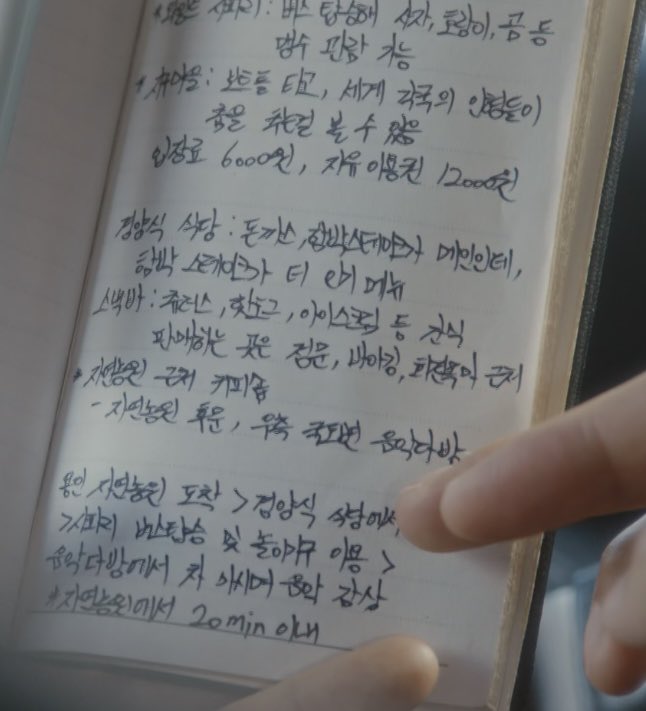 사파리: 버스 탑승해 사자, 호랑이, 곰 등
맹수 관람 가능
보트를 타고, 세계 각국의 인형들이
춤을 추는걸 볼 수 있음
입장료 6000원, 자유이용권 12000원
경양식 식당: 돈까스, 함박스테이크가 메인인데,
함박 스테이크가 더 인기 메뉴
스낵바: 츄러스, 핫도그, 아이스크림 등 간식
판매하는 곳은 정문, 바이킹, 회전목마 근처
* 자연농원 근처 커피숍
- 자연농원 후문, 우측 국도변 음악다방
용인 자연농원 도착 > 경양식 식당에서
> 사파리 버스탑승 및 놀이기구 이용 >
음악다방에서 차 마시며 음악 감상
* 자연농원에서 20min 이내